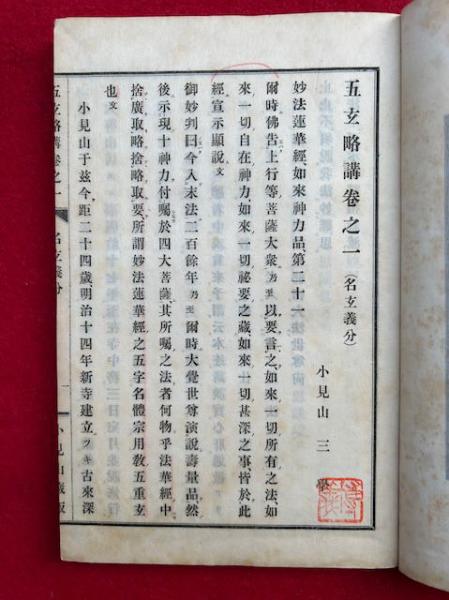 五玄略講卷之一(名玄義分)
小見山三學
妙法蓮華經、如來神力品、第二十一
爾時佛告上行等菩薩大衆、乃至以要言之、如來一切所有之法、如
來一切自在神力、如來一切祕要之藏、如來一切甚深之事、皆於此
經宣示顯說文
御妙判曰今、入末法二百餘年乃至爾時大覺世尊演說壽量品、然
後示現十神力、付囑於四大菩薩、其所囑之法者何物乎、法華經中
捨廣取略、捨略取要、所謂妙法蓮華經之五字、名體宗用教五重玄
也文
小見山于茲今、距二十四歲明治十四年新寺建立ヲキ古來深
五玄略講卷之一
名玄義分
一
小見山藏版